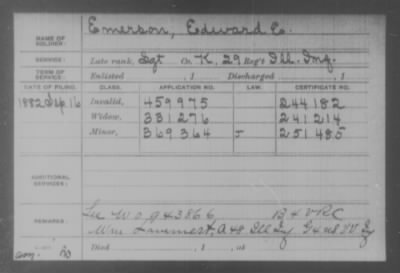 NAME OF SOLDIER: Emerson, Edward E.
SERVICE: Late rank, Sgt Co. K, 29 Reg't Ill. Inf.
TERM OF SERVICE: Enlisted , 1 Discharged , 1
DATE OF FILING. CLASS. APPLICATION NO. LAW. CERTIFICATE NO.
1882 Sep. 16 Invalid, 459975 244182
Widow, 331276 241214
Minor, 369364 J 251485
ADDITIONAL SERVICES:
REMARKS: See W O 943866 13 4 VRC
Wm A 48 Ill Inf G 4 US V V Inf
Died , 1 , at